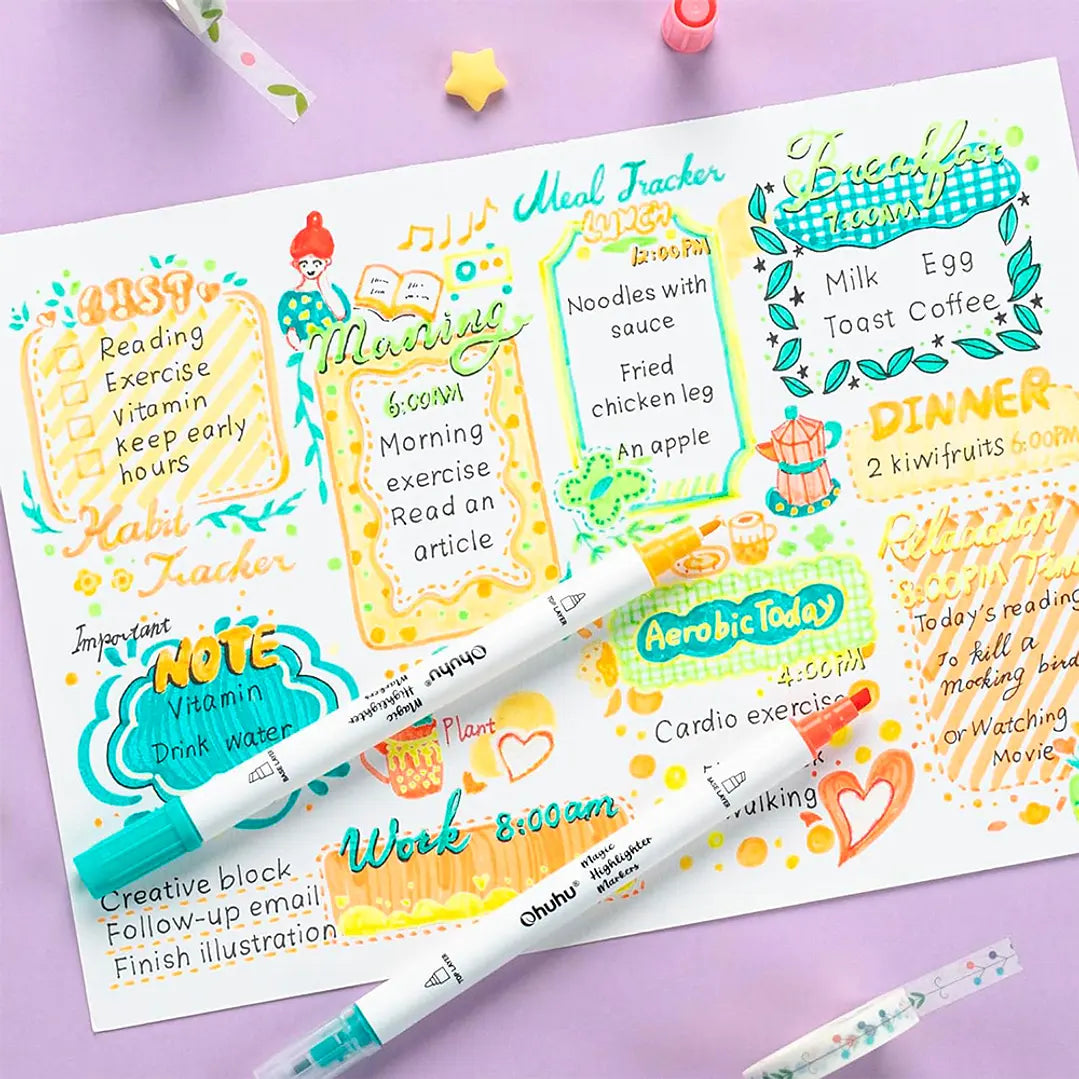 LIST
Reading
Exercise
Vitamin
keep early
hours
Habit
Tracker
Morning
6:00AM
Morning
exercise
Read an
article
Meal Tracker
LUNCH
12:00PM
Noodles with
sauce
Fried
chicken leg
An apple
Breakfast
7:00AM
Milk Egg
Toast Coffee
DINNER
2 kiwifruits 6:00PM
Important
NOTE
Vitamin
Drink water
Plant
Aerobic Today
4:00PM
Cardio exercise
walking
Relaxation
8:00PM Time
Today's reading
To kill a
mocking bird
or Watching
Movie
Work 8:00am
Creative block
Follow-up email
Finish illustration
TOP LAYER
Ohuhu®
Magic
Highlighter
Markers
BASE LAYER
BASE LAYER
Magic
Highlighter
Markers
Ohuhu®
TOP LAYER